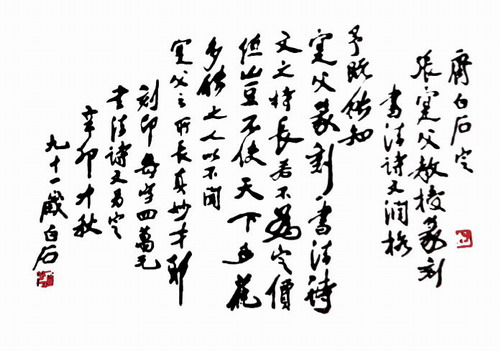 齊白石定
張寔父教授篆刻
書法詩文潤格
予既能知
寔父篆刻書法詩
文之特長若不為定價
值豈不使天下
多能之人以不聞
寔父之所長真妙才耶
刻印每字四萬元
書法詩文另定
辛卯中秋
九十一歲白石